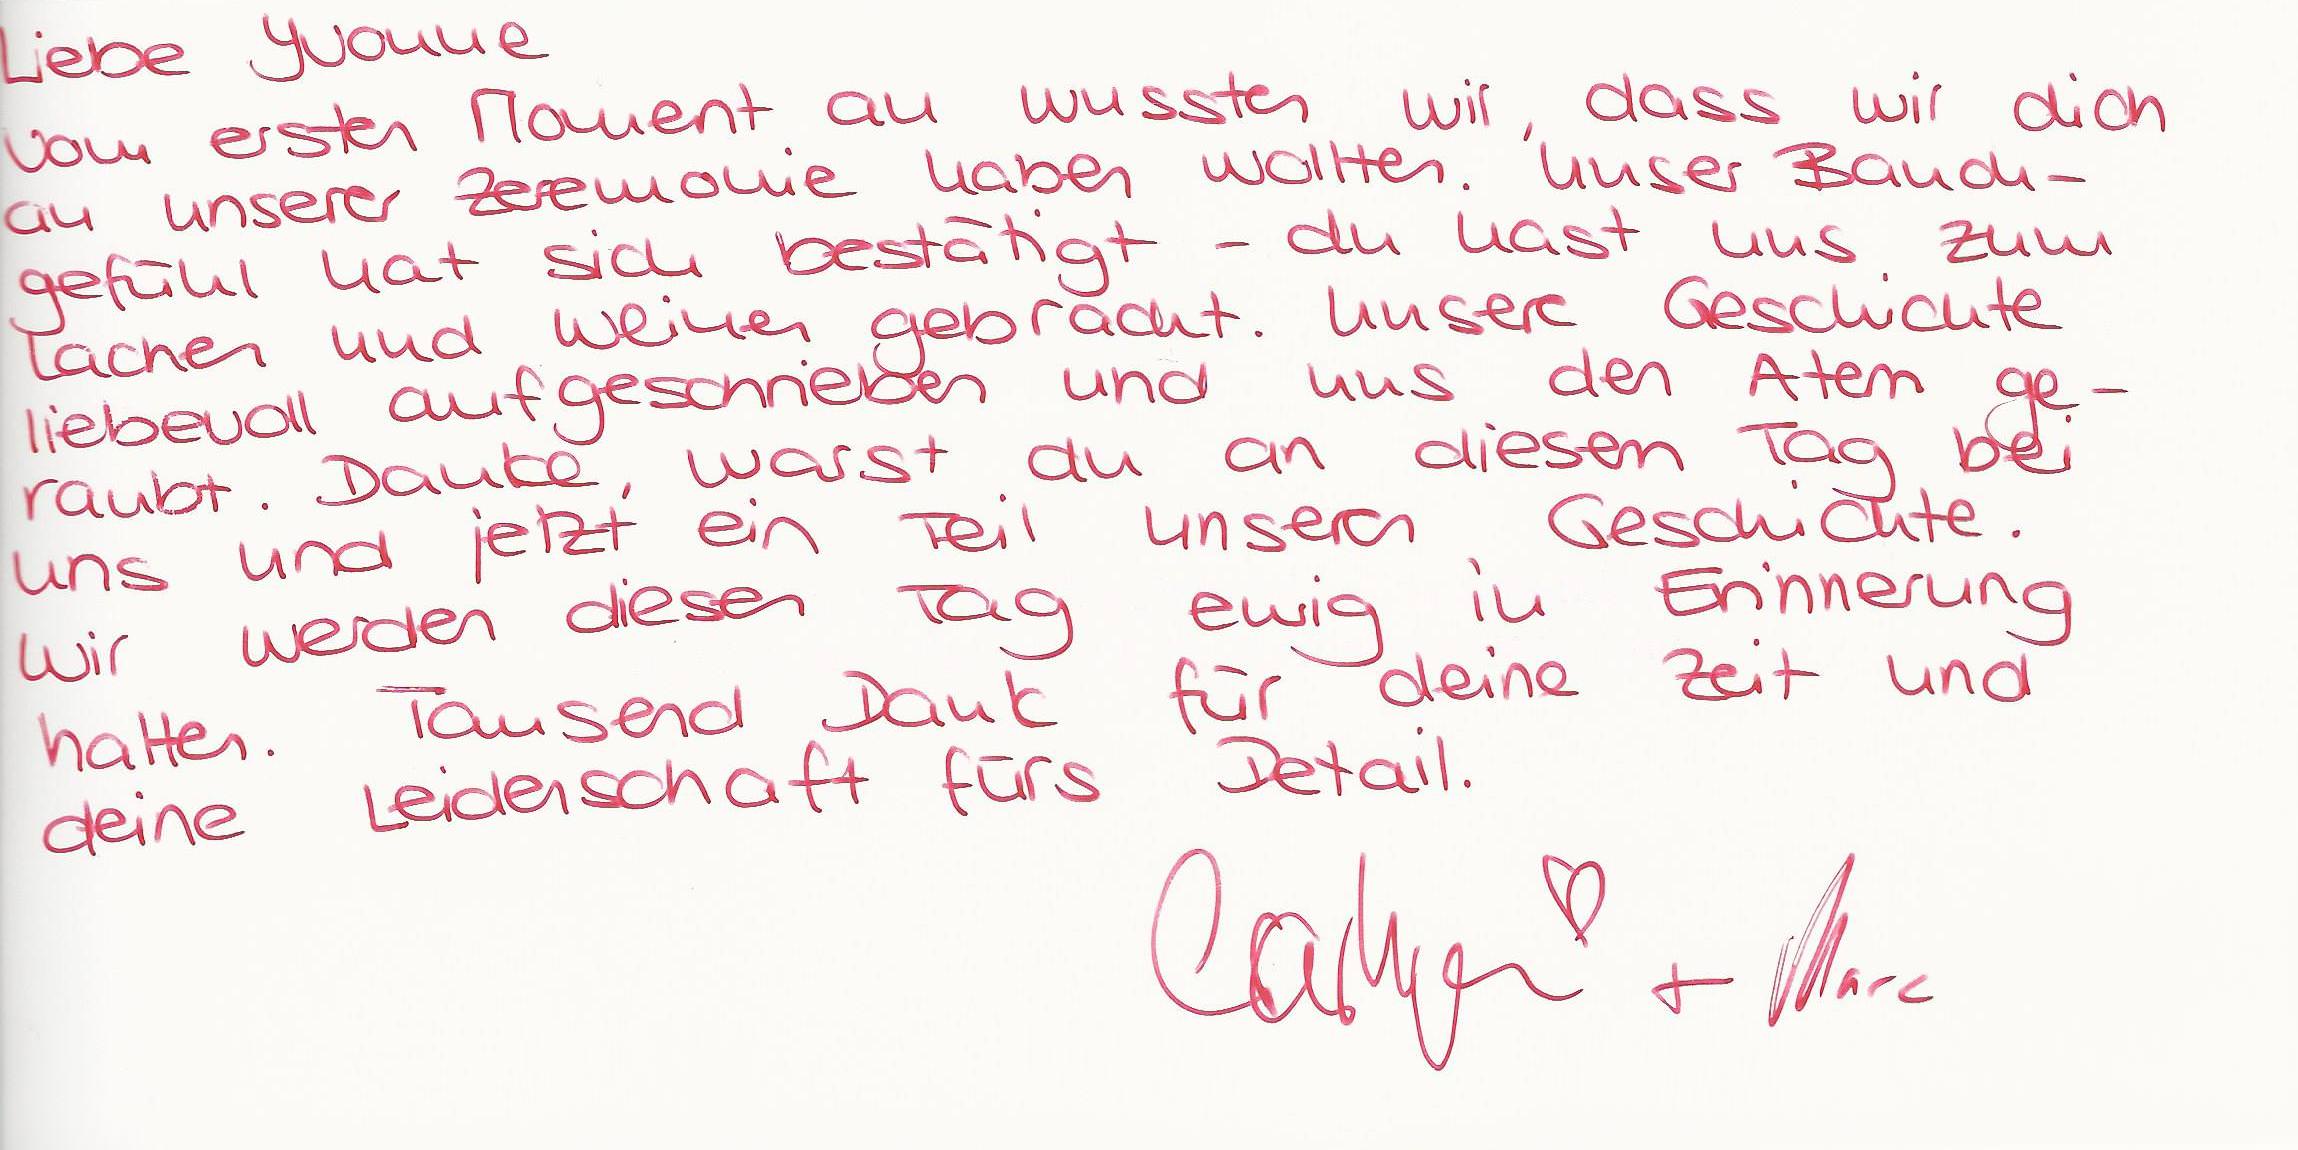 Liebe Yvonne
vom ersten Moment an wussten wir, dass wir dich
an unserer Zeremonie haben wollten. Unser Bauch-
gefühl hat sich bestätigt - du hast uns zum
Lachen und Weinen gebracht. Unsere Geschichte
liebevoll aufgeschrieben und uns den Atem ge-
raubt. Danke, warst du an diesem Tag bei
uns und jetzt ein Teil unserer Geschichte.
Wir werden diesen Tag ewig in Erinnerung
halten. Tausend Dank für deine Zeit und
deine Leidenschaft fürs Detail.
+ Marc